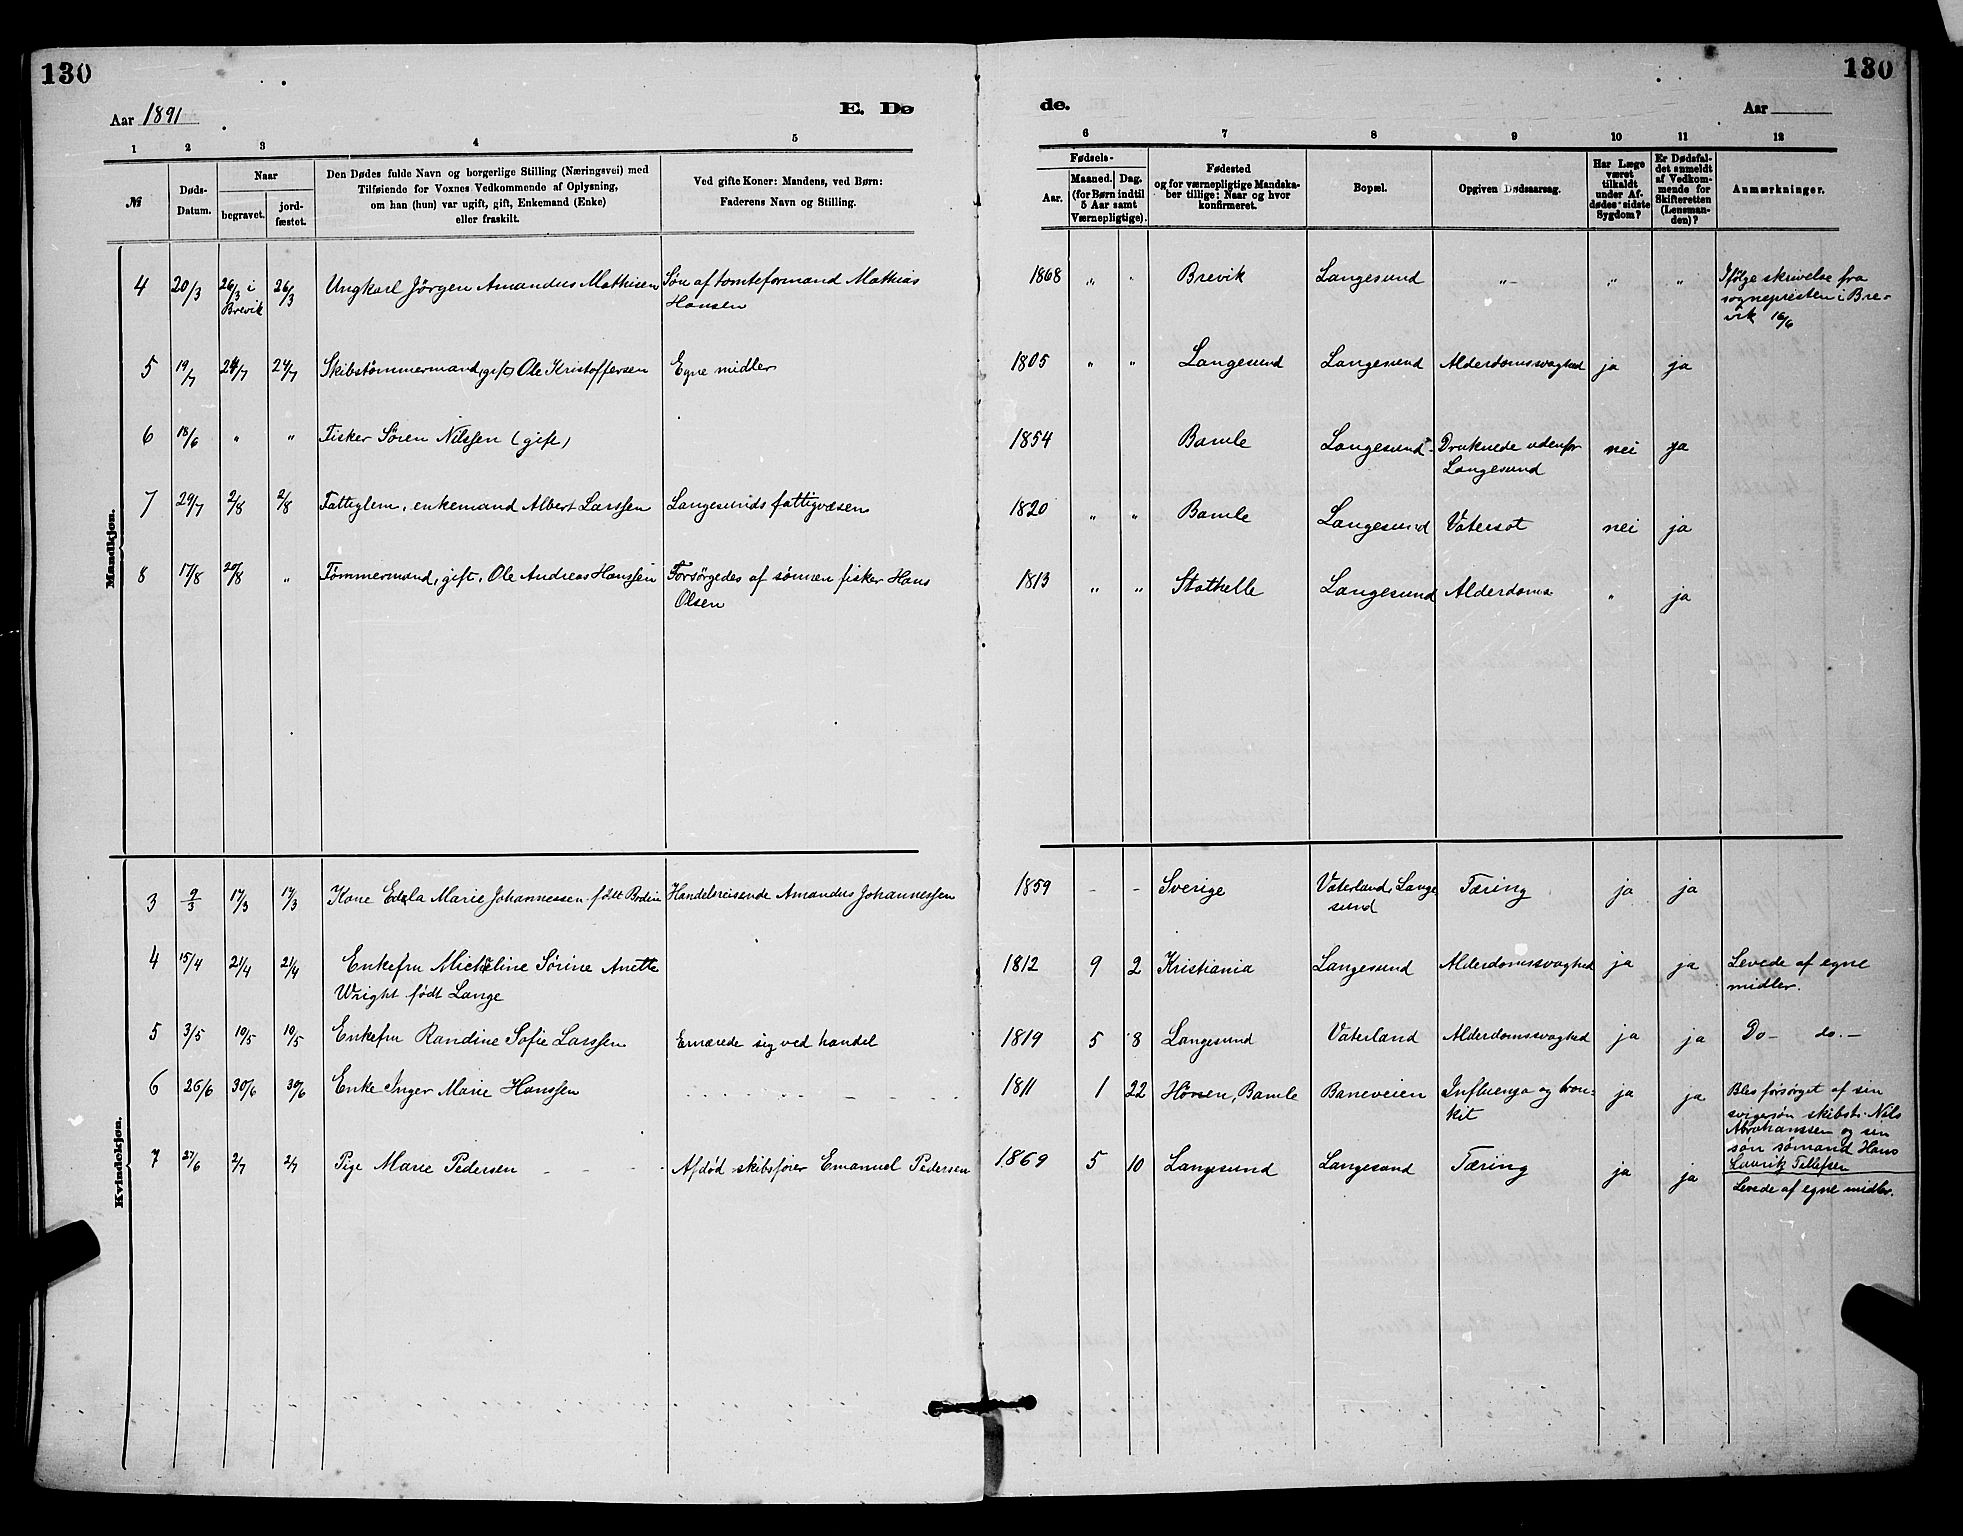 130
130
Aar 1891
E. Dø
de.
Aar
1 2 3 4 5 6 7 8 9 10 11 12
№
Døds-
Datum.
Naar
begravet.
jord-
fæstet.
Den Dødes fulde Navn og borgerlige Stilling (Næringsvei) med
Tilføiende for Voxnes Vedkommende af Oplysning,
om han (hun) var ugift, gift, Enkemand (Enke)
eller fraskilt.
Ved gifte Koner: Mandens, ved Børn:
Faderens Navn og Stilling.
Fødsels-
Aar.
Maaned. Dag.
(for Børn indtil
5 Aar samt
Værnepligtige).
Fødested
og for værnepligtige Mandska-
ber tillige: Naar og hvor
konfirmeret.
Bopæl.
Opgiven Dødsaarsag.
Har Læge
været
tilkaldt
under Af-
dødes sidste
Sygdom?
Er Dødsfal-
det anmeldt
af Vedkom-
mende for
Skifteretten
(Lensman-
den)?
Anmærkninger.
Mandkjøn.
4 20/3 26/3 i Brevik 26/3 Ungkarl Jörgen Amandus Mathisen Søn af tomteformand Mathias
Hansen
1868 " " Brevik Langesund " " " Ifølge skrivelse fra
sognepresten i Bre-
vik 16/6
5 19/7 24/7 24/7 Skibstømmermand (gift) Ole Kristoffersen Egne midler 1805 " " Langesund Langesund Alderdomssvaghed ja ja
6 18/6 " " Fisker Sören Nilssen (gift) 1854 Bamle Langesund Druknede udenfor
Langesund nei ja
7 29/7 2/8 2/8 Fattiglem, enkemand Albert Larssen Langesunds fattigvæsen 1820 " " Bamle Langesund Vatersot nei ja
8 17/8 20/8 " Tømmermand, gift, Ole Andreas Hanssen Forsørgedes af sønnen fisker Hans
Olsen
1813 " " Stathelle Langesund Alderdoms " ja
Kvindekjøn.
3 9/3 17/3 17/3 Kone Edla Marie Johannessen født Bodin Handelsreisende Amandus Johannessen 1859 - - Sverige Vaterland, Lange
sund Tæring ja ja
4 15/4 21/4 21/4 Enkefru Micheline Sørine Anette
Wright født Lange
1812 9 2 Kristiania Langesund Alderdomssvaghed ja ja Levede af egne
midler.
5 3/5 10/5 10/5 Enkefru Randine Sofie Larssen Ernærede sig ved handel 1819 5 8 Langesund Vaterland Alderdomssvaghed ja ja Do - do. -
6 26/6 30/6 30/6 Enke Inger Marie Hanssen 1811 1 22 Hönen, Bamle Baneveien Influenza og bron-
kit ja ja Blev forsørget af sin
svigersøn skibst. Nils
Abrahamssen og sin
søn sømand Hans
Laurits Tellefsen
7 27/6 2/7 2/7 Pige Marie Pedersen Afdød skibsfører Emanuel Pedersen 1869 5 10 Langesund Langesund Tæring ja ja
Levede af egne midler.